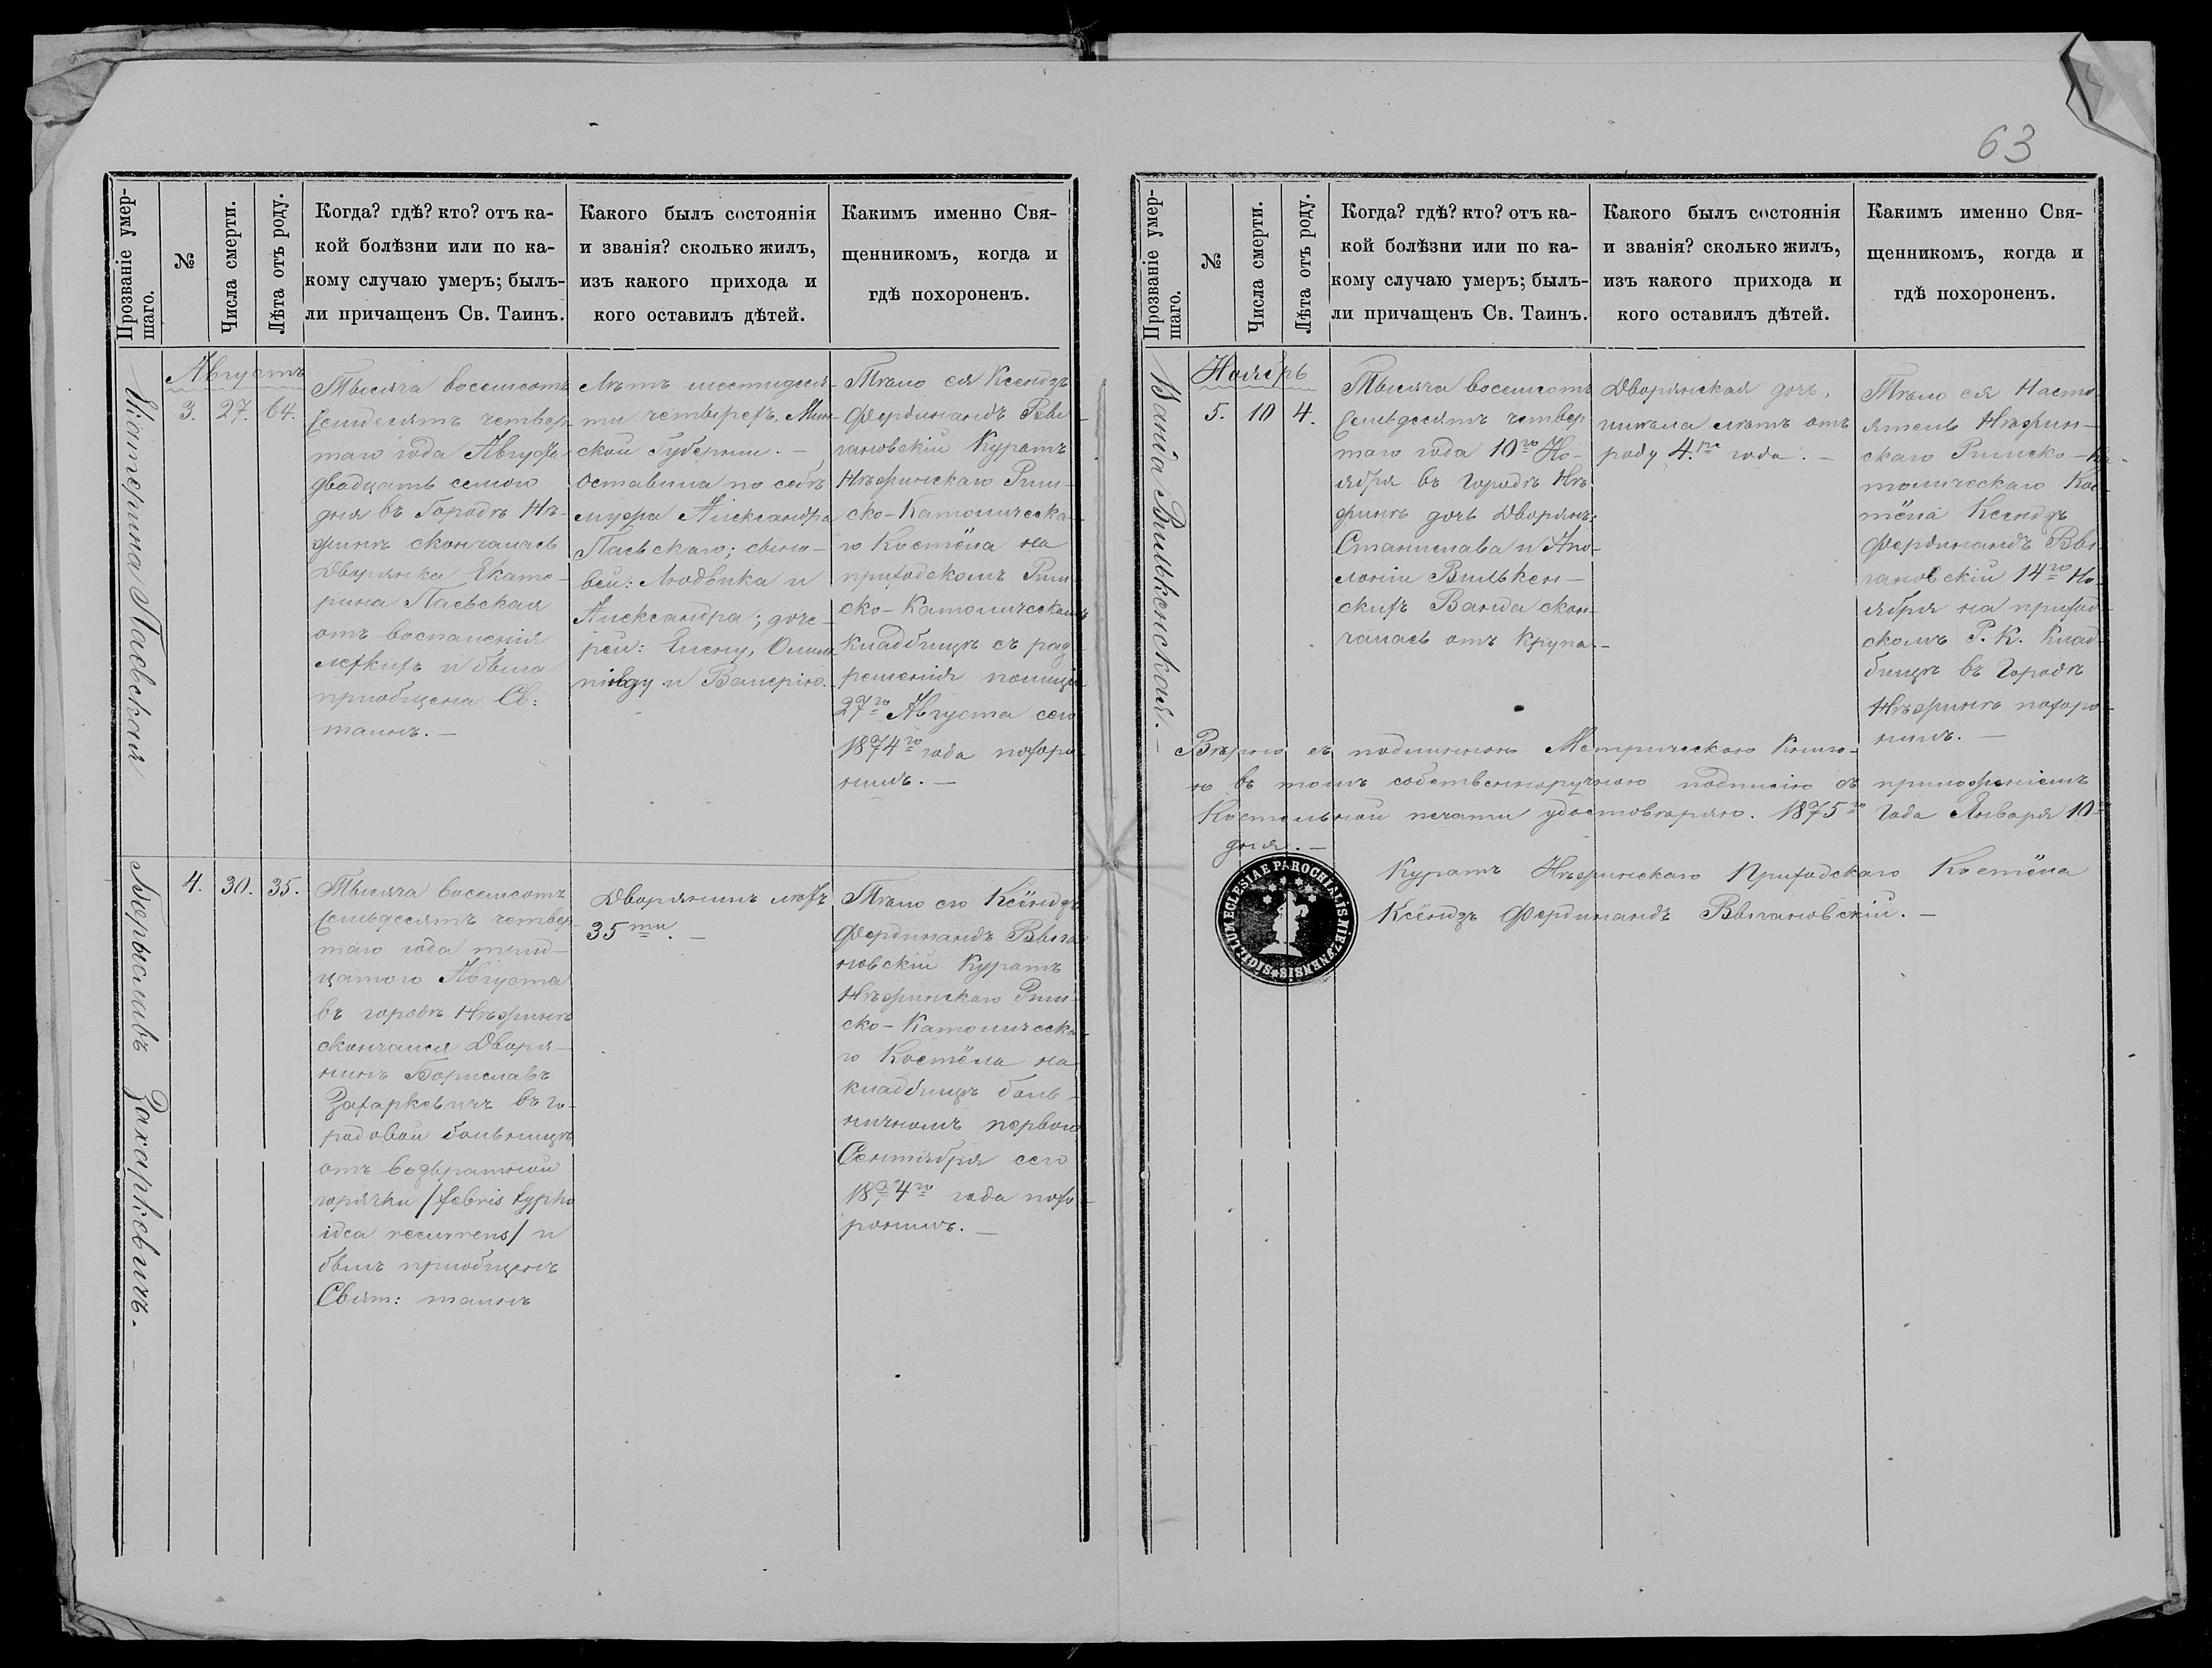 63
Прозваніе умер-
шаго.
№
Числа смерти.
Лѣта отъ роду.
Когда? гдѣ? кто? отъ ка-
кой болѣзни или по ка-
кому случаю умеръ; былъ-
ли причащенъ Св. Таинъ.
Какого былъ состоянія
и званія? сколько жилъ,
изъ какого прихода и
кого оставилъ дѣтей.
Какимъ именно Свя-
щенникомъ, когда и
гдѣ похороненъ.
Екатерина Паевская
Августъ
3. 27. 64.
Тысяча восемсотъ
семидесятъ четвер-
таго года Августа
двадцать семого
дня въ Городѣ Нѣ-
жинѣ скончалась
Дворянка Екате-
рина Паевская
отъ воспаленія
легкихъ и была
приобщена Св:
таинъ. —
Лѣтъ шестидеся-
ти четырехъ. Мин-
ской Губерніи. —
Оставила по себѣ
мужа Александра
Паевскаго; сыно-
вей: Людвика и
Александра; доче-
рей: Елену,
и Валерію.
Тѣло ея Ксендзъ
Фердинандъ Выг-
гановскій Куратъ
Нѣжинскаго Рим-
ско-Католическа-
го Костёла на
приходскомъ Рим-
ско-Католическомъ
кладбищѣ съ раз-
решенія полиціи
27го Августа сего
1874го года похоро-
нилъ. —
Борыславъ Захаркевичъ. —
4. 30. 35.
Тысяча восемсотъ
семьдесятъ четвер-
таго года трид-
цатого Августа
въ городѣ Нѣжинѣ
скончался Дворя-
нинъ Бориславъ
Захаркевичъ въ го-
родовой больницѣ
отъ возвратной
горячки /febris typho
idea recurrens/ и
былъ приобщенъ
Свят: таинъ
Дворянинъ лѣтъ
35ти. —
Тѣло его Ксёндзъ
Фердинандъ Выга-
новскій Куратъ
Нѣжинскаго Рим-
ско-Католическа-
го Костёла на
кладбищѣ боль-
ничномъ первого
Сентября сего
1874го года похо-
ронилъ. —
Прозваніе умер-
шаго.
№
Числа смерти.
Лѣта отъ роду.
Когда? гдѣ? кто? отъ ка-
кой болѣзни или по ка-
кому случаю умеръ; былъ-
ли причащенъ Св. Таинъ.
Какого былъ состоянія
и званія? сколько жилъ,
изъ какого прихода и
кого оставилъ дѣтей.
Какимъ именно Свя-
щенникомъ, когда и
гдѣ похороненъ.
Вильkенская. —
Ноябрь
5. 10 4.
Тысяча восемсотъ
семьдесятъ четвер
таго года 10го Но-
ября въ Городѣ Нѣ
жинѣ дочь Дворянъ:
Станислава и Апо-
лоніи Вилькен-
скихъ Ванда скон-
чалась отъ крупа. —
Дворянская дочь,
имѣла лѣтъ отъ
роду 4. года. —
Тѣло ея Насто
ятель Нѣжин-
скаго Римско-Ка-
толическаго Кос-
тёла Ксендзъ
Фердинандъ Вы-
гановскій 14го Но-
ября на приход-
скомъ Р. К. Клад-
бищѣ въ Городѣ
Нѣжинѣ похоро-
нилъ. —
Вѣрно съ подлинною Метрическою Книго-
ю въ томъ собственноручною подписію съ приложеніемъ
Костельной печати удостовѣряю. 1875го Года Января 10
дня. —
Куратъ Нѣжинскаго Приходскаго Костёла
Ксёндзъ Фердинандъ Выгановскій. —
SIGILLUM ECLESIAE PAROCHIALIS NIEZYNENSIS